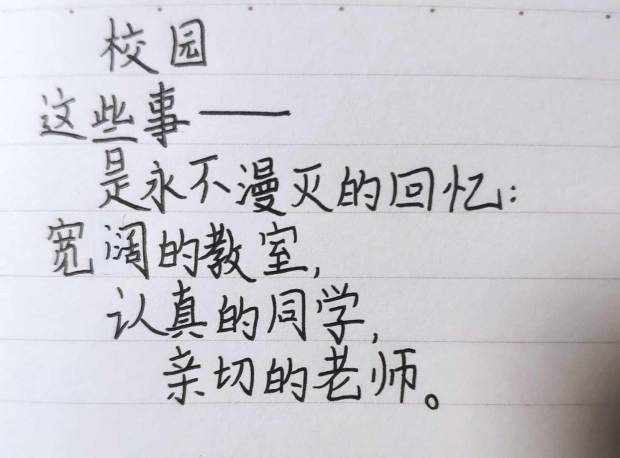 校园
这些事——
是永不漫灭的回忆：
宽阔的教室，
认真的同学，
亲切的老师。